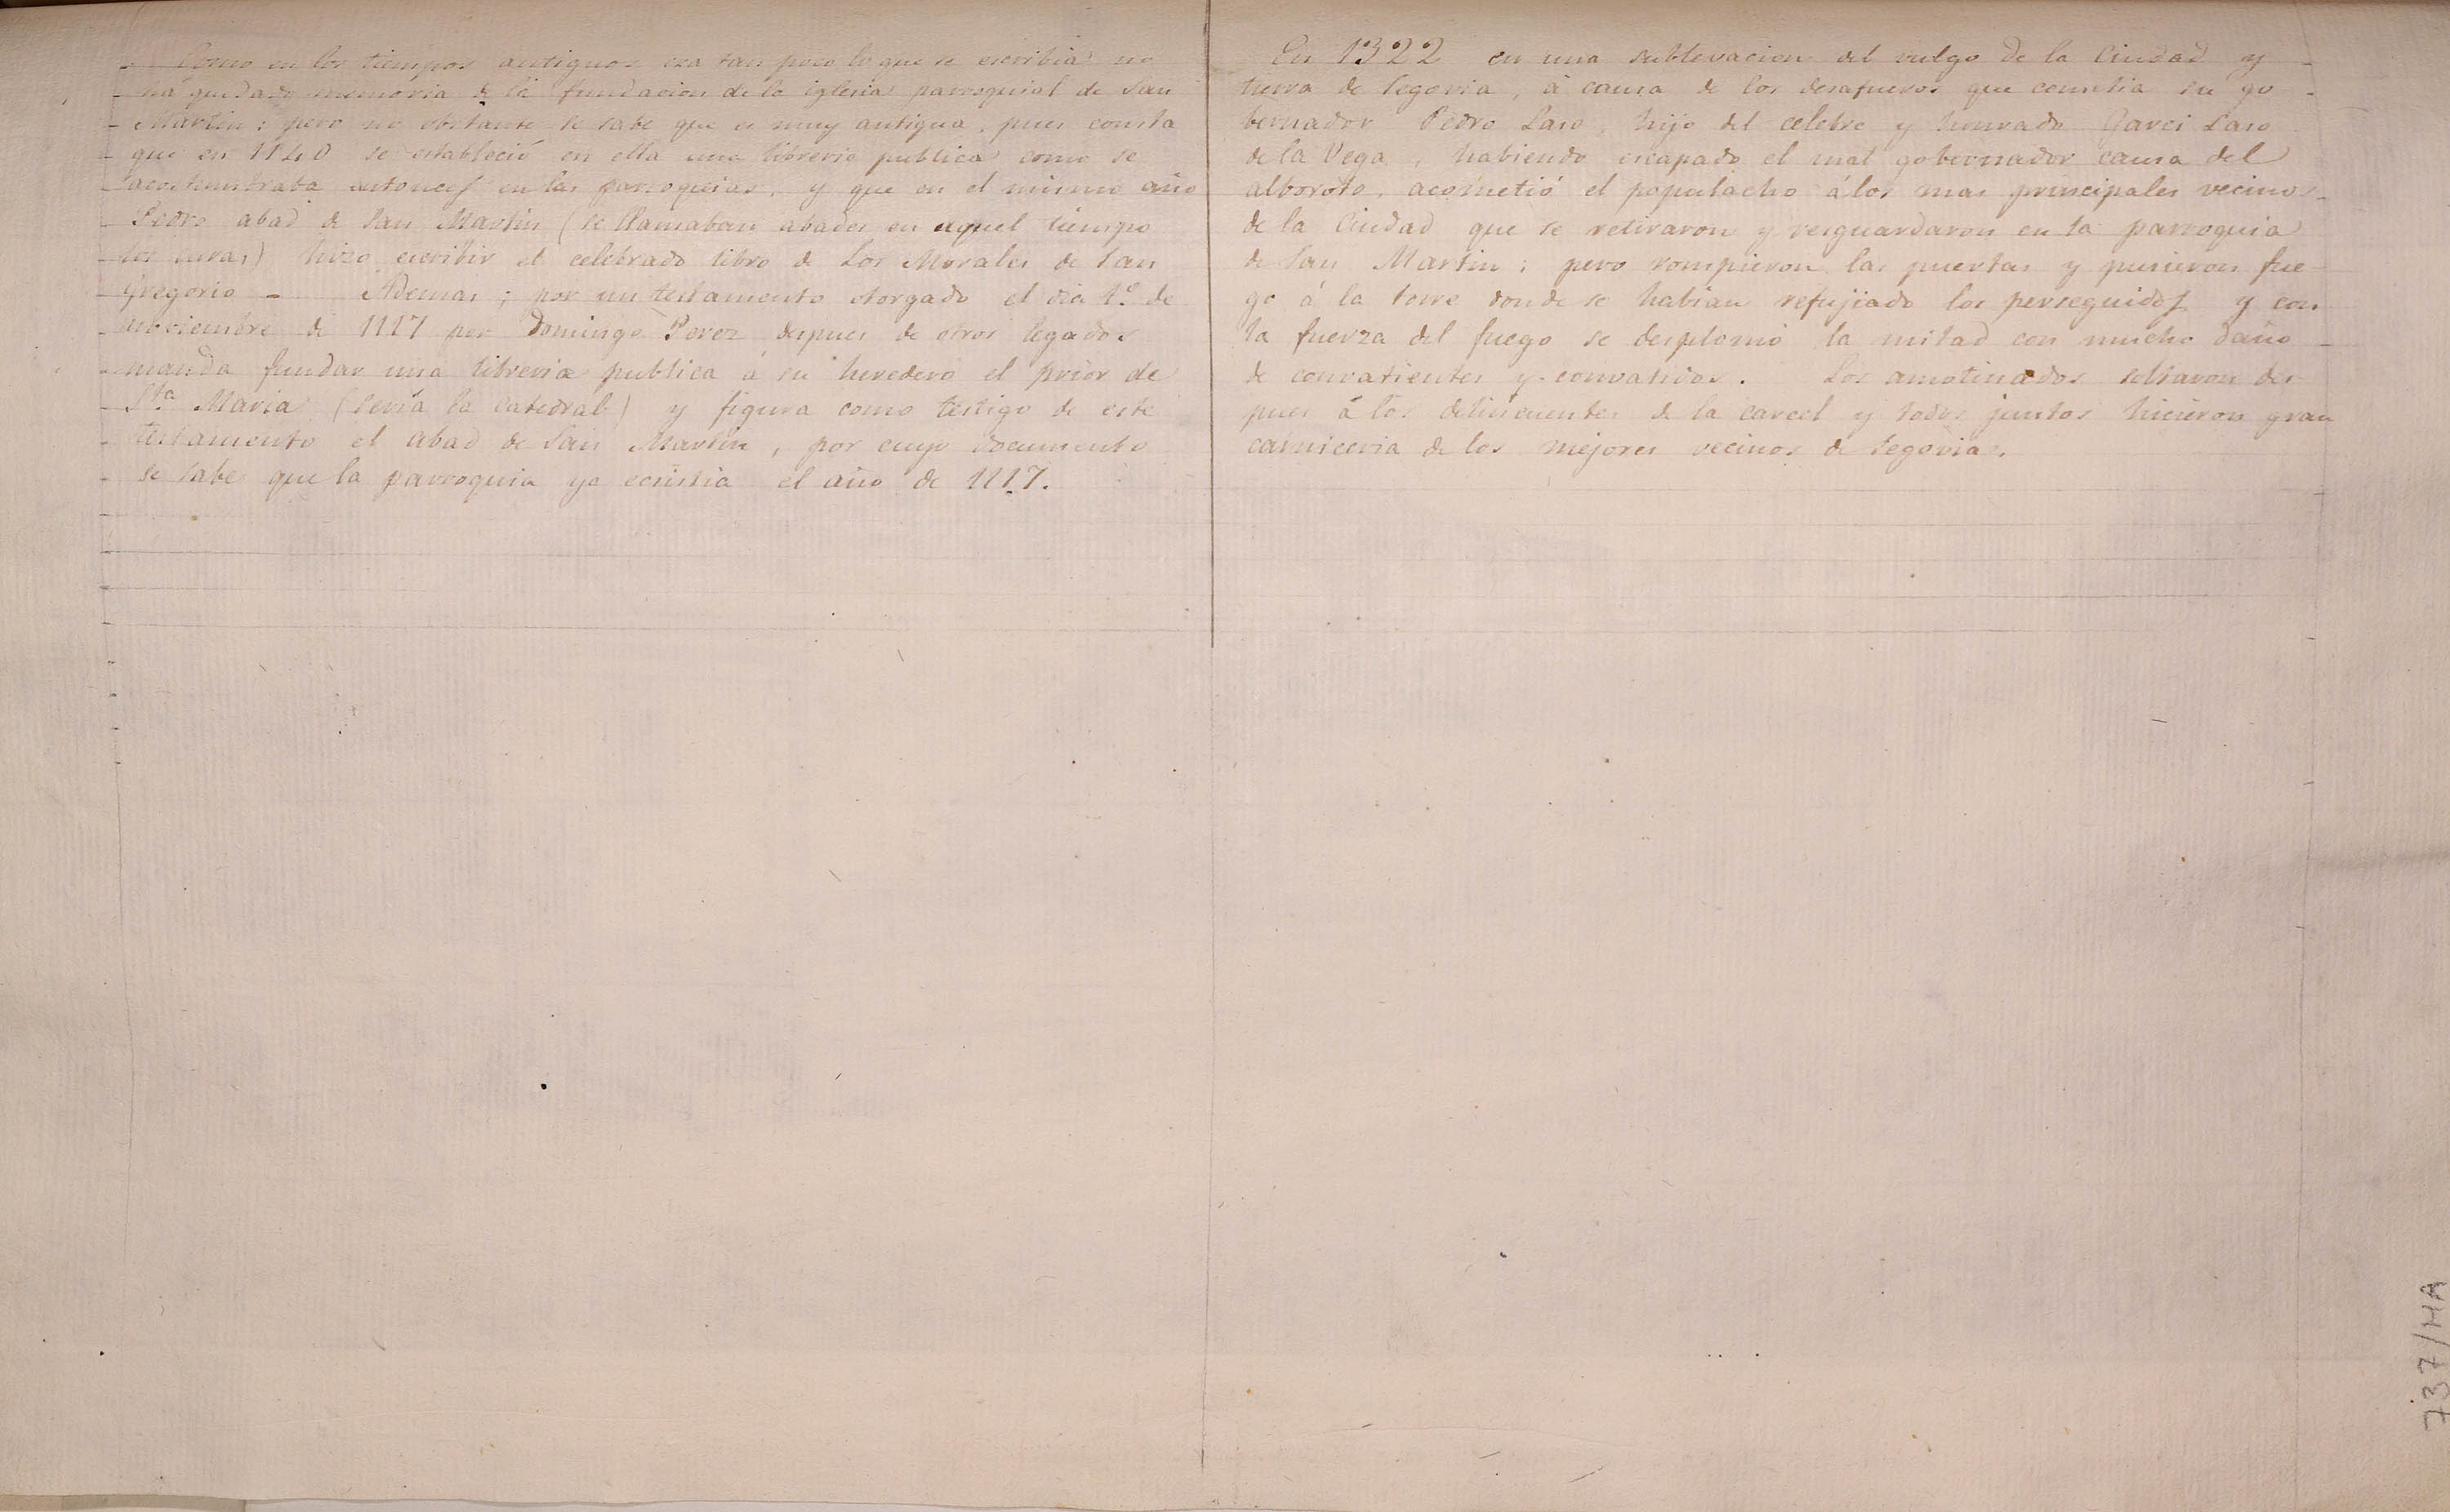 Como en los tiempos antiguos era tan poco lo que se escribia no
há quedado memoria de la fundacion de la iglesia parroquial de San
Martin: pero no obstante se sabe que es muy antigua, pues consta
que en 1140 se estableció en ella una libreria publica como se
acostumbraba entonces en las parroquias, y que en el mismo año
Pedro abad de San Martin (se llamaban abades en aquel tiempo
los curas) hizo escribir el celebrado libro de Los Morales de San
Gregorio - Ademas; por un testamento otorgado el dia 1º de
noviembre de 1117 por Domingo Perez despues de otros legados
manda fundar una libreria publica á su heredero el prior de
Sta Maria (seria la catedral) y figura como testigo de este
testamento el abad de San Martin, por cuyo documento
se sabe que la parroquia ya ecsistia el año de 1117.
En 1322 en una sublevacion del vulgo de la Ciudad y
tierra de Segovia, á causa de los desafueros que cometia su go
bernador Pedro Laso, hijo del celebre y honrado Garci Laso
de la Vega, habiendo escapado el mal gobernador causa del
alboroto, acometió el populacho á los mas principales vecinos
de la Ciudad que se retiraron y resguardaron en la parroquia
de San Martin; pero rompieron las puertas y pusieron fue
go á la torre donde se habian refujiado los perseguidos y con
la fuerza del fuego se desplomó la mitad con mucho daño
de convatientes y convatidos. Los amotinados soltaron des
pues á los delincuentes de la carcel y todos juntos hicieron gran
carniceria de los mejores vecinos de Segovia.
737/HA